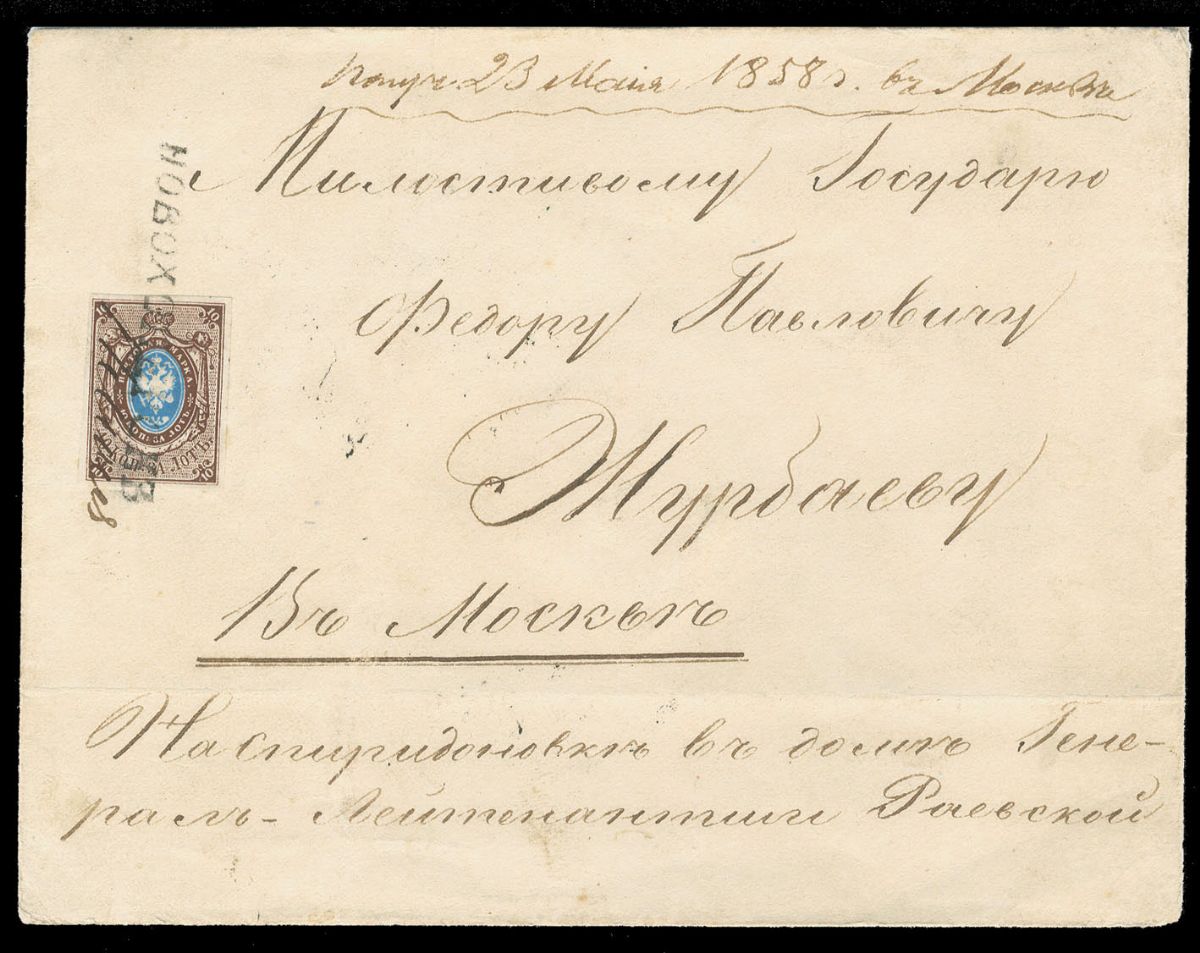 Получ. 23 Маія 1858 г. въ Москвѣ
Милостивому Государю
Федору Павловичу
Журбаеву
Въ Москвѣ
На Спиридоновкѣ въ домѣ Гене-
ралъ-Лейтенантши Раевской
ПОЧТОВАЯ МАРКА
10 КОП. ЗА ЛОТЪ
10 КОП. ЗА ЛОТЪ
10
10
10
10